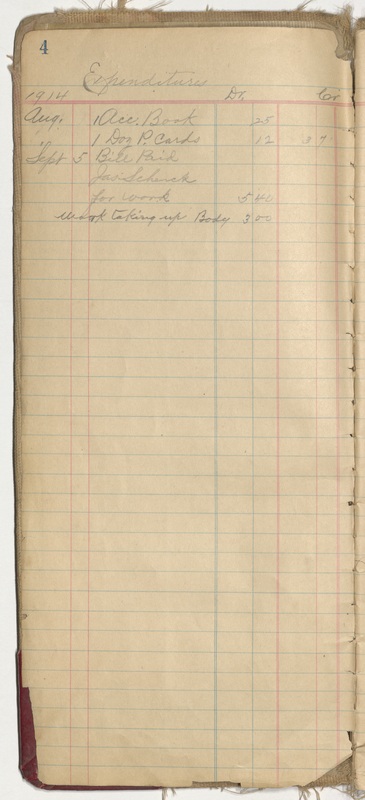 4
Expenditures
1914 Dr. Cr
Aug. 1 Acc. Book 25
" 1 Doz P. Cards 12 37
Sept 5 Bill Paid
Jas Schenck
for work 5 40
Work taking up Body 3 00